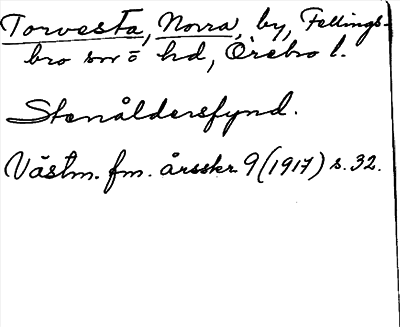 Torvesta, Norra, by, Fellings-
bro sn o hd, Örebro l.
Stenåldersfynd.
Västm. fm. årsskr. 9 (1917) s. 32.